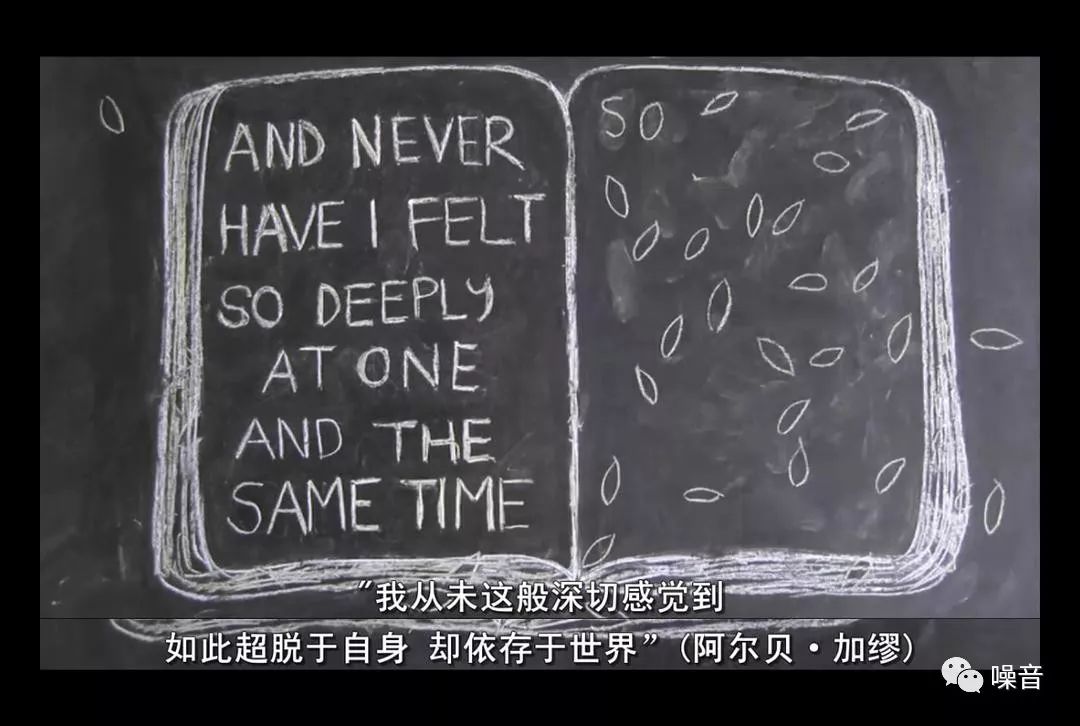 AND NEVER
HAVE I FELT
SO DEEPLY
AT ONE
AND THE
SAME TIME
SO
"我从未这般深切感觉到
如此超脱于自身 却依存于世界”(阿尔贝·加缪)
噪音